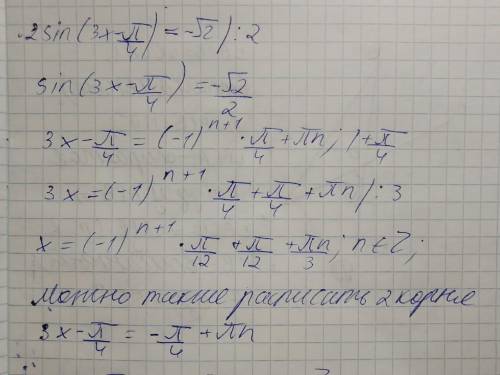 2sin(3x-π/4)=-√2) :2
sin(3x-π/4)=-√2/2
3x-π/4=(-1)^(n+1)·π/4+πn; |+π/4
3x=(-1)^(n+1)·π/4+π/4+πn/:3
x=(-1)^(n+1)·π/12+π/12+πn/3; n∈Z;
Можно также расписать 2 корня
3x-π/4=-π/4+πn